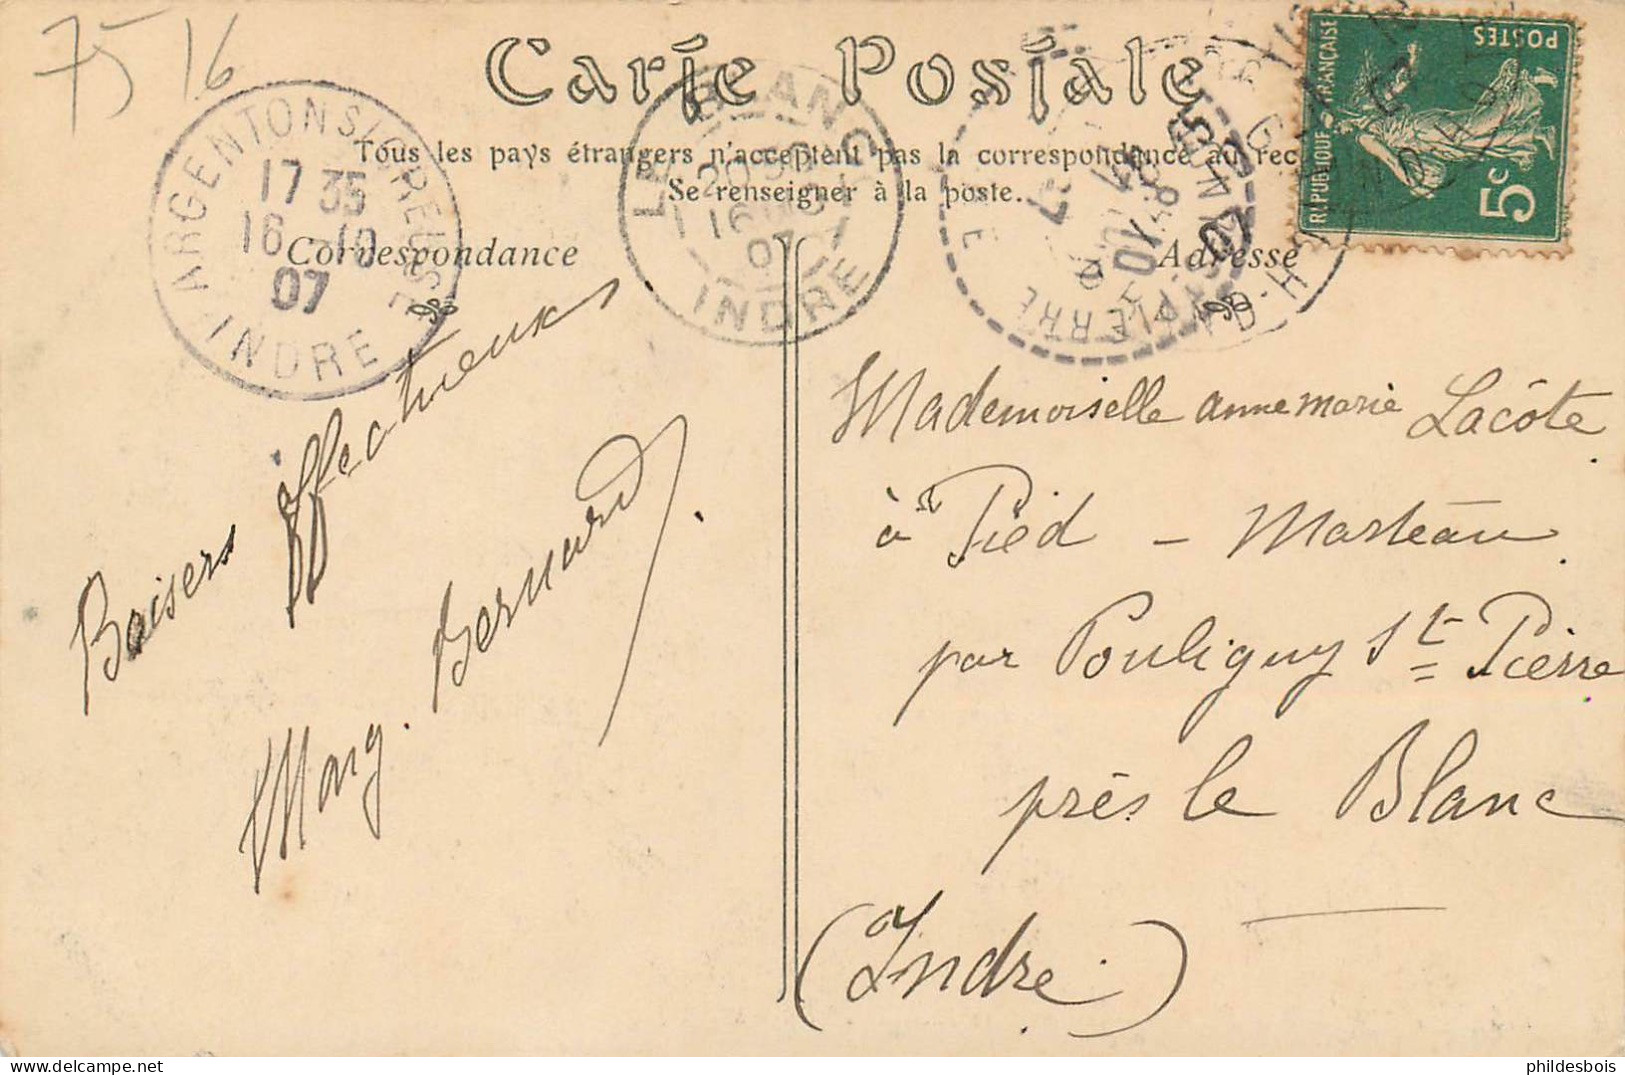 75 16
Carte Postale
Tous les pays étrangers n'acceptent pas la correspondance au rec
Se renseigner à la poste.
Correspondance
Adresse
ARGENTON S/CREUSE
17 35
16 - 10
07
INDRE
LE BLANC
20 30
16
07
INDRE
PIERRE
07
REPUBLIQUE FRANÇAISE
POSTES
5c
Baisers affectueux
Marg. Bernard.
Mademoiselle anne marie Lacôte
à Pied - Marteau
par Pouligny St Pierre
près le Blanc
(Indre)
phildesbois